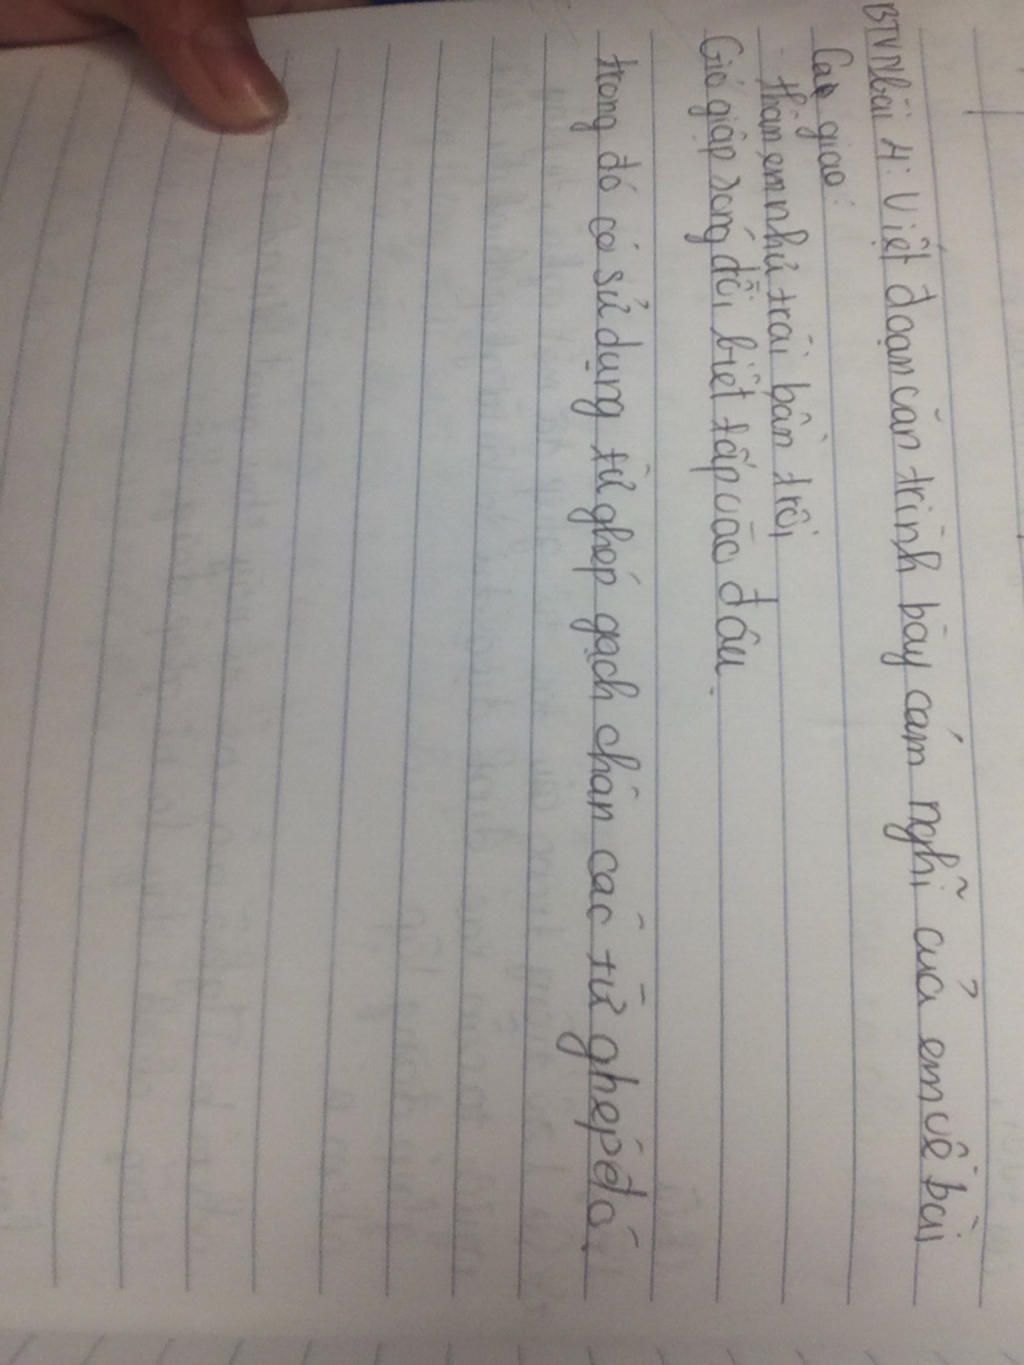 BTVN bài 4: Viết đoạn văn trình bày cảm nghĩ của em về bài
Ca giao:
thân em như trái bần trôi
Gió giập sóng dồi biết tấp vào đâu.
trong đó có sử dụng từ ghép gạch chân các từ ghép đó.